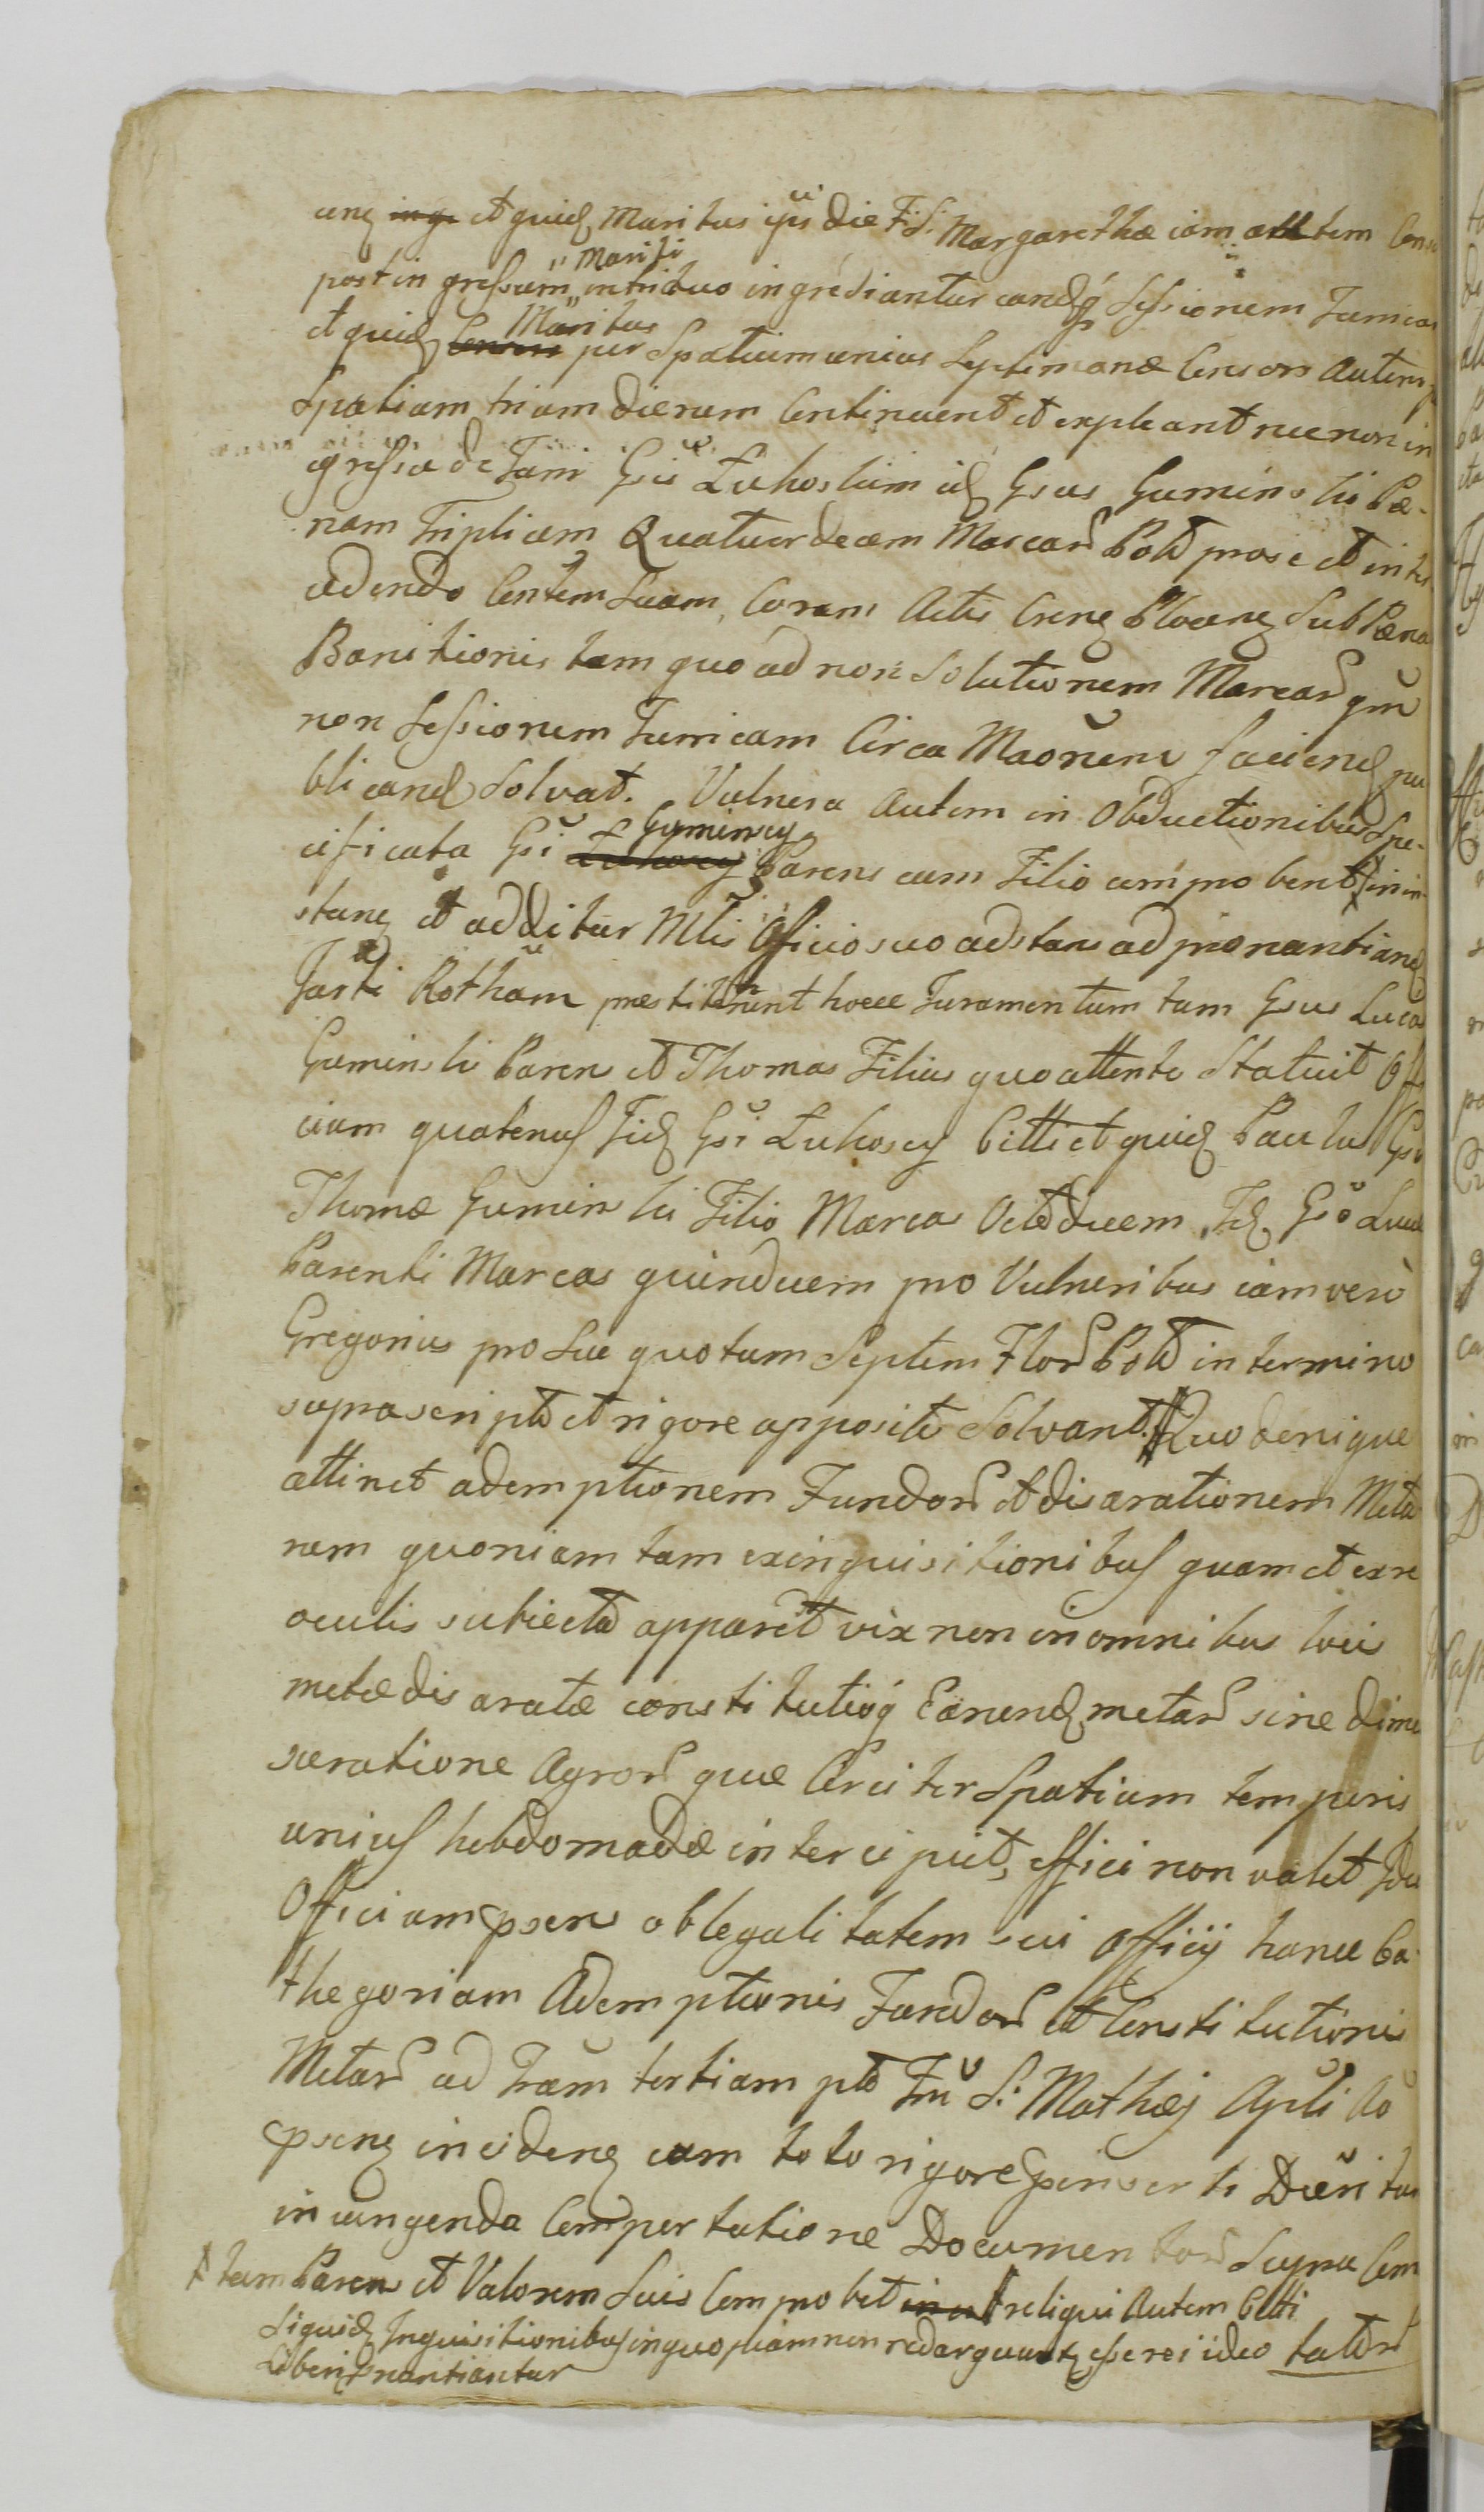 et quid Maritus ipsa die F: S: Margarethæ iam autem
post in gressum Mariti intriduo ingrediantur eandq Sessionem Turricam
et quid Maritus per Spatium unius Septimanæ Censors Autem
Spatium trium dierum Continuent et expleant nec non in
gressu de Turri Gsus Łukoskim Gsus Guminski Pæ-
nam Triplicem Quatuordecem Marcar Pold pro se et inter
cedendo Contem Suam, Coram Actis Plocen Sub Pæna
Banitionis tam quo ad non Solutionem Marcar qm
non Sessionem Turricam Circa Maonem faciend pu
blicand Solvat. Vulnera Autem in Obductionibus Spe-
cificata Gsi Guminscy Parens cum Filio comprobent in in-
stan et additur Mlis Officio suo adstans ad pronuntiand
Rotham præstiterunt hocce Juramentum tam Gsus Lucas
Guminski Parens et Thomas Filius quo attento Statuit Offi
cium quatenus Gsi Łukoscy Citti et quid Paulus Gso
Thomæ Guminski Filio Marcas Octodecem, Gso Lucæ
Parenti Marcas quindecem pro Vulneribus iam vero
Gregorius pro Sua quotam Septem Flor Pold in termino
suprascripto et rigore apposito Solvant. Quo denique
attinet ademptionem Fundor et disarationem Meta
rum quoniam tam ex inquisitionibus quam et ex re
oculis subiecta apparet vix non in omnibus locis
metæ disaratæ constitutioq Earund metar sine dime
suratione Agror quæ Circiter Spatium temporis
unius hebdomadæ intercipiet, effici non valet Ideo
Officium psens ob legalitatem sui Officij hance Ca
thegoriam Ademptionis Fundor et Constitutionis
Metar ad Tram tertiam pto Fm S: Mathæj Apli Ao
psen inciden cum toto rigore
iniungenda Comportatione Documentor Supra Com
tum Parens et Valorem Suis Comprobet reliqui Autem Citti
Siquid Inquisitionibus in quopiam non redarguunt esse rei ideo tator
Liberi pronuntiantur